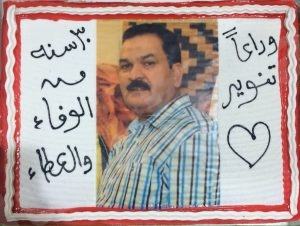 وداعاً
تنوير
٣٠ سنه
من
الوفاء
والعطاء